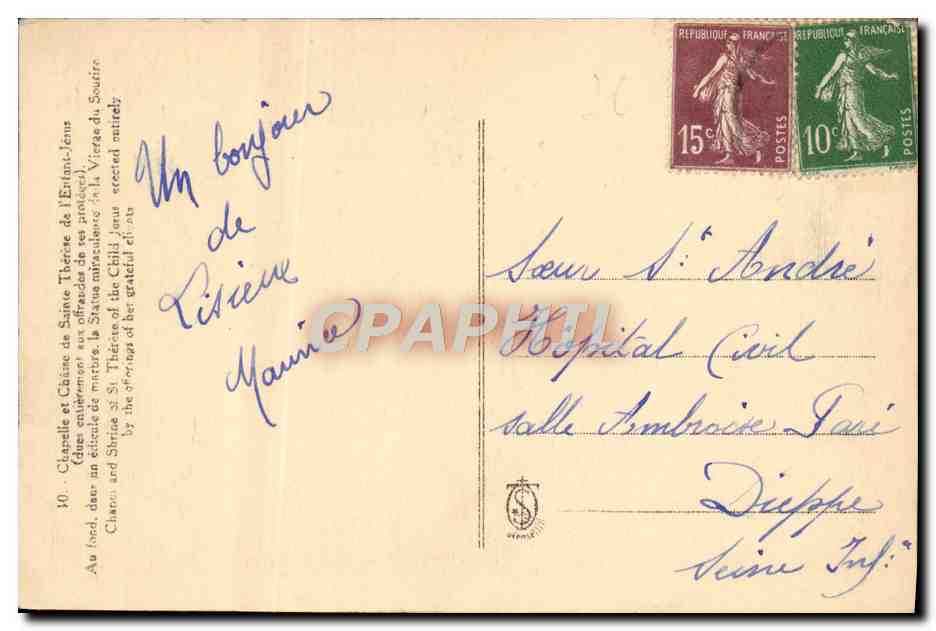 10. - Chapelle et Châsse de Sainte Thérèse de l'Enfant-Jésus
(dues entièrement aux offrandes de ses protégés).
Au fond, dans un édicule de marbre, la Statue miraculeuse de la Vierge du Sourire
Chapel and Shrine of St. Thérèse of the Child Jesus erected entirely
by the offerings of her grateful clients
Un bonjour
de
Lisieux
Maurice
REPUBLIQUE FRANÇAISE
15c
POSTES
REPUBLIQUE FRANÇAISE
10c
POSTES
Sœur St André
Hôpital Civil
salle Ambroise Paré
Dieppe
Seine Inf:
CPAPHIL